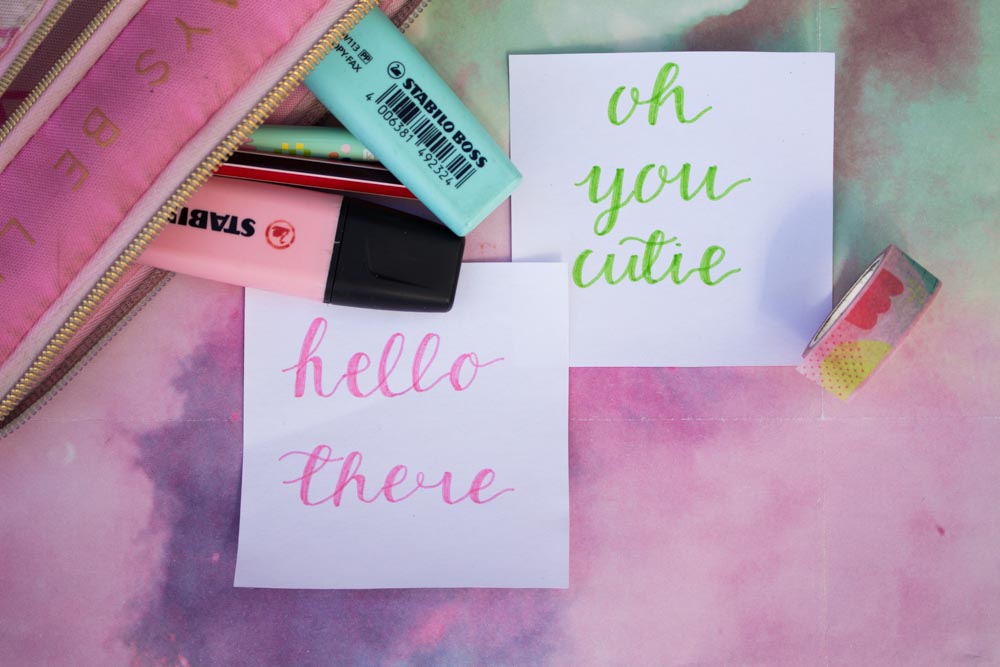 YS
BE
STABILO BOSS
4 006381 492324
STABI
oh
you
cutie
hello
there